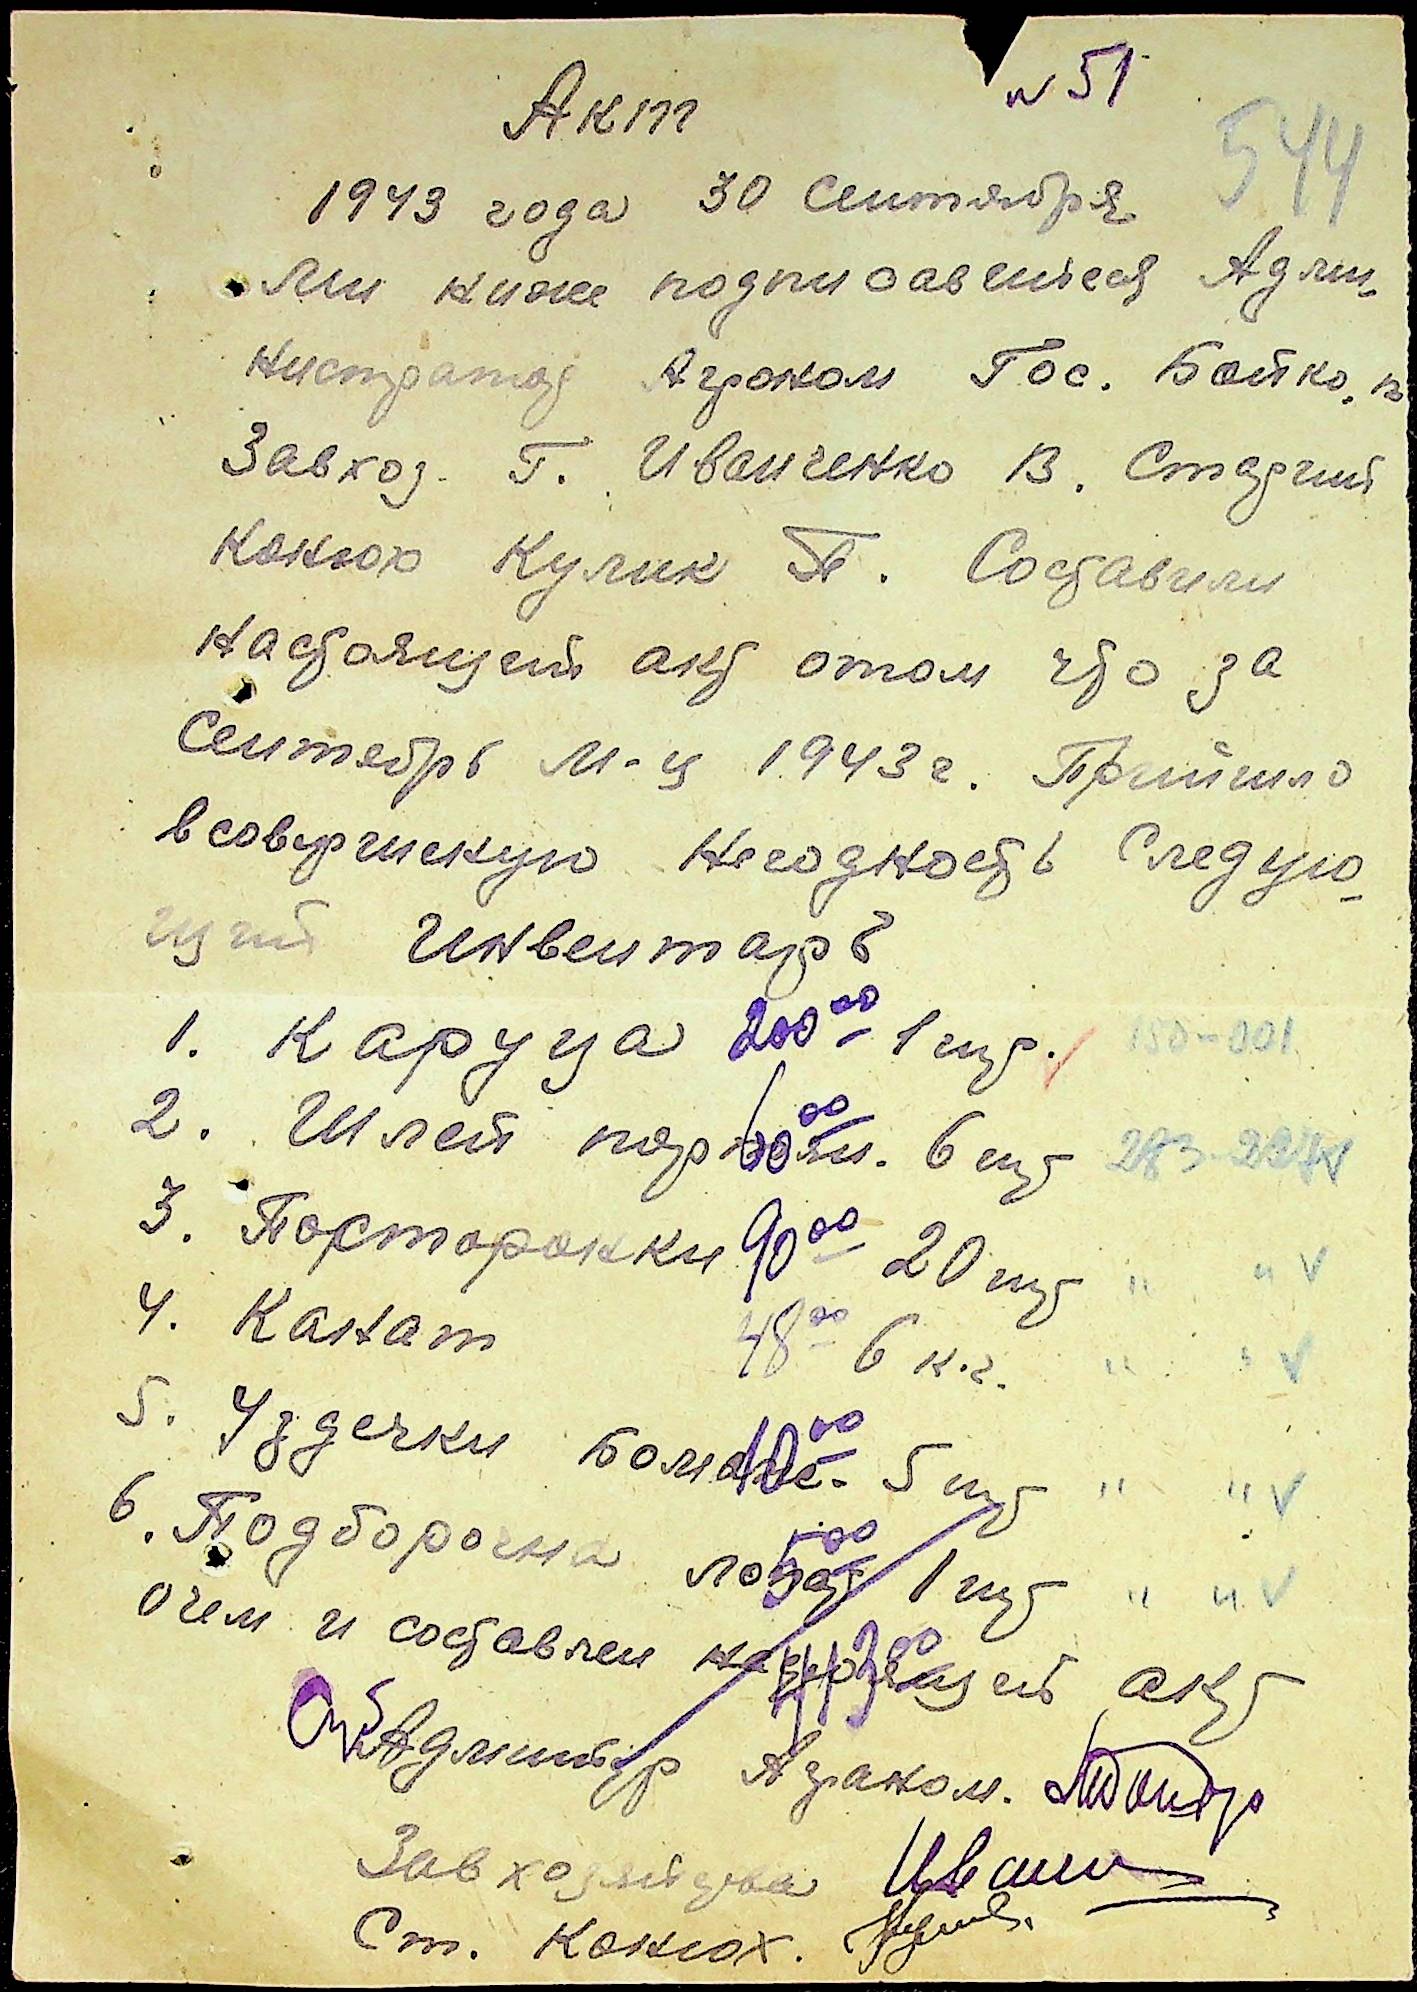 № 51
544
Акт
1943 года 30 Сентября
Ми ниже подписавшиеся Адми-
нистратор Агроном Гос. Бойко. П
Завхоз. Г. Иванченко В. Старший
Конюх Кулик П. Составили
настоящей акт отом что за
Сентябрь М-ц 1943 г. Прийшло
в совершенную Негодность Следую-
щий Инвентарь
1. Каруца 200 00 1 шт. 150-001
2. Шлей 60 00 6 шт 283-
3. Посторонки 90 00 20 шт " "
4. Канат 48 00 6 к.г. " "
5. Уздечки 10 00 5 шт " "
6. Подборочна 5 00 1 шт " "
О чем и составлен настоящей акт
413 00
Агроном.
Завхозяйства Иванч
Ст. Конюх. Кулик